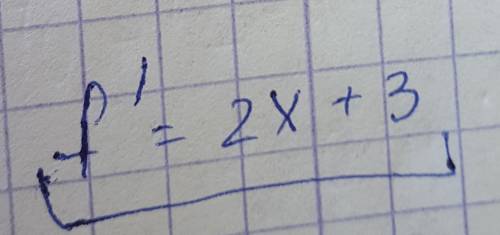 f' = 2x + 3